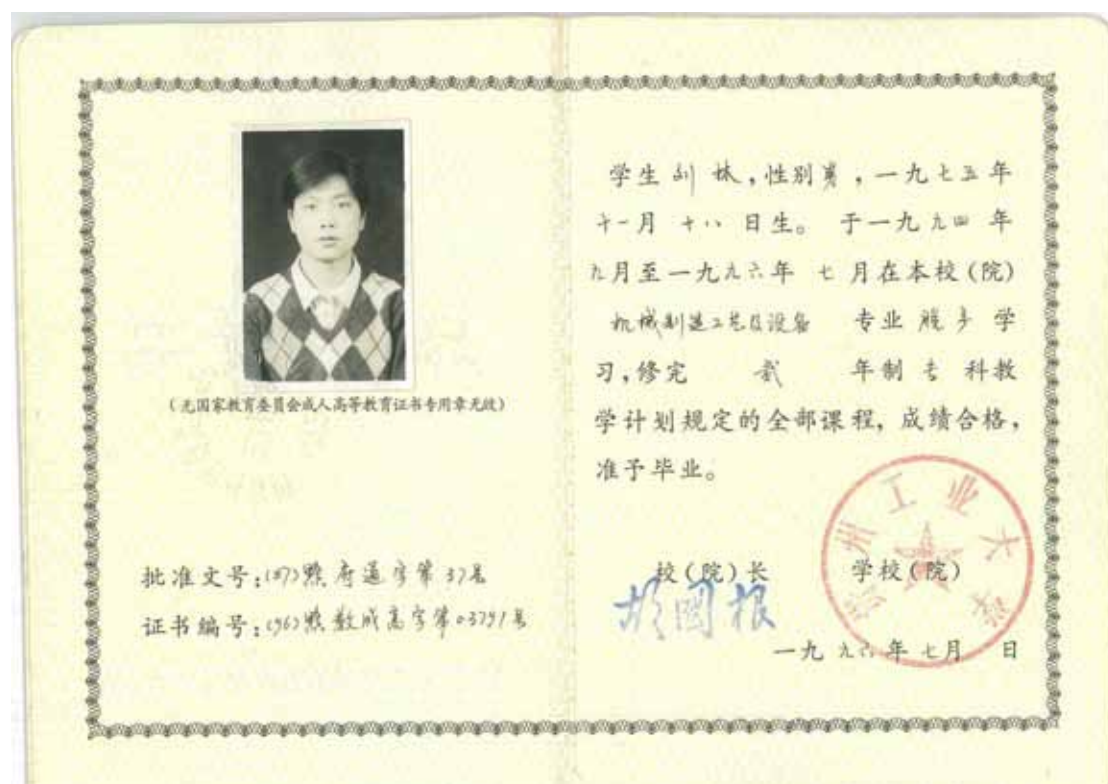 (无国家教育委员会成人高等教育证书专用章无效)
批准文号:(87)黔府通字第37号
证书编号:(96)黔教成高字第03791号
学生刘林,性别男,一九七五年
十一月十八日生。于一九九四年
九月至一九九六年七月在本校(院)
机械制造工艺及设备 专业脱产学
习,修完 贰 年制专科教
学计划规定的全部课程,成绩合格,
准予毕业。
校(院)长 学校(院)
胡国根
贵州工业大学
一九九六年七月 日